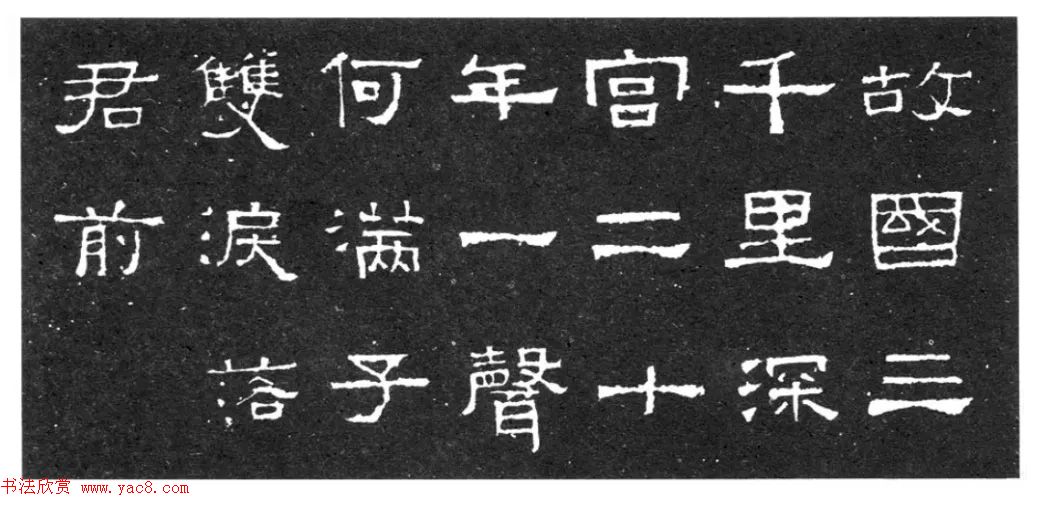 故國三
千里深
宮二十
年一聲
何滿子
雙淚落
君前
书法欣赏 www.yac8.com